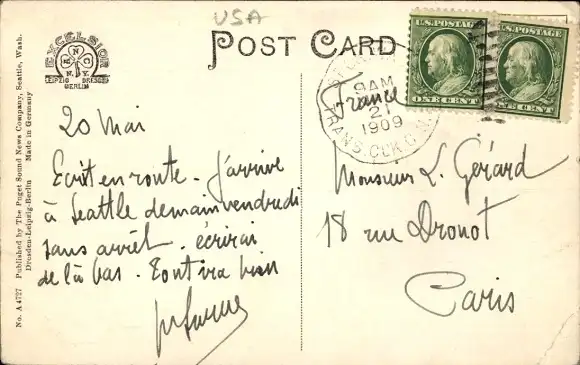 USA
POST CARD
EXCELSIOR
R N C
N.Y.
LEIPZIG DRESDEN
BERLIN
No. A 4727 Published by The Puget Sound News Company, Seattle, Wash.
Dresden-Leipzig-Berlin Made in Germany
U.S. POSTAGE
ONE CENT
U.S. POSTAGE
ONE CENT
9 AM
21
1909
TRANS. CLK
France
20 Mai
Ecrit en route. J'arrive
à Seattle demain vendredi
sans arrêt. écrirai
de là bas. Tout va bien
Monsieur L. Gérard
18 rue Drouot
Paris